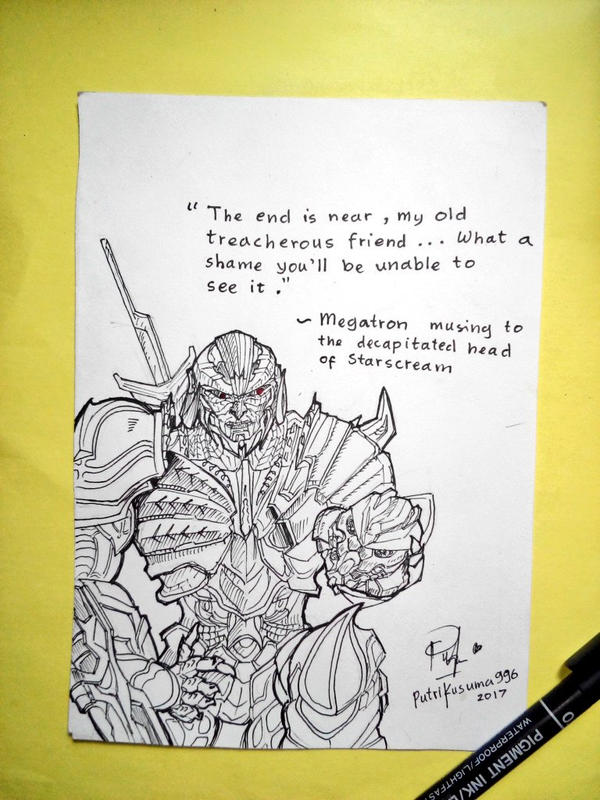 “ The end is near , my old
treacherous friend ... What a
shame you'll be unable to
see it ."
~ Megatron musing to
the decapitated head
of Starscream
putrikusuma996
2017
PIGMENT INK/
WATERPROOF/LIGHTFAS